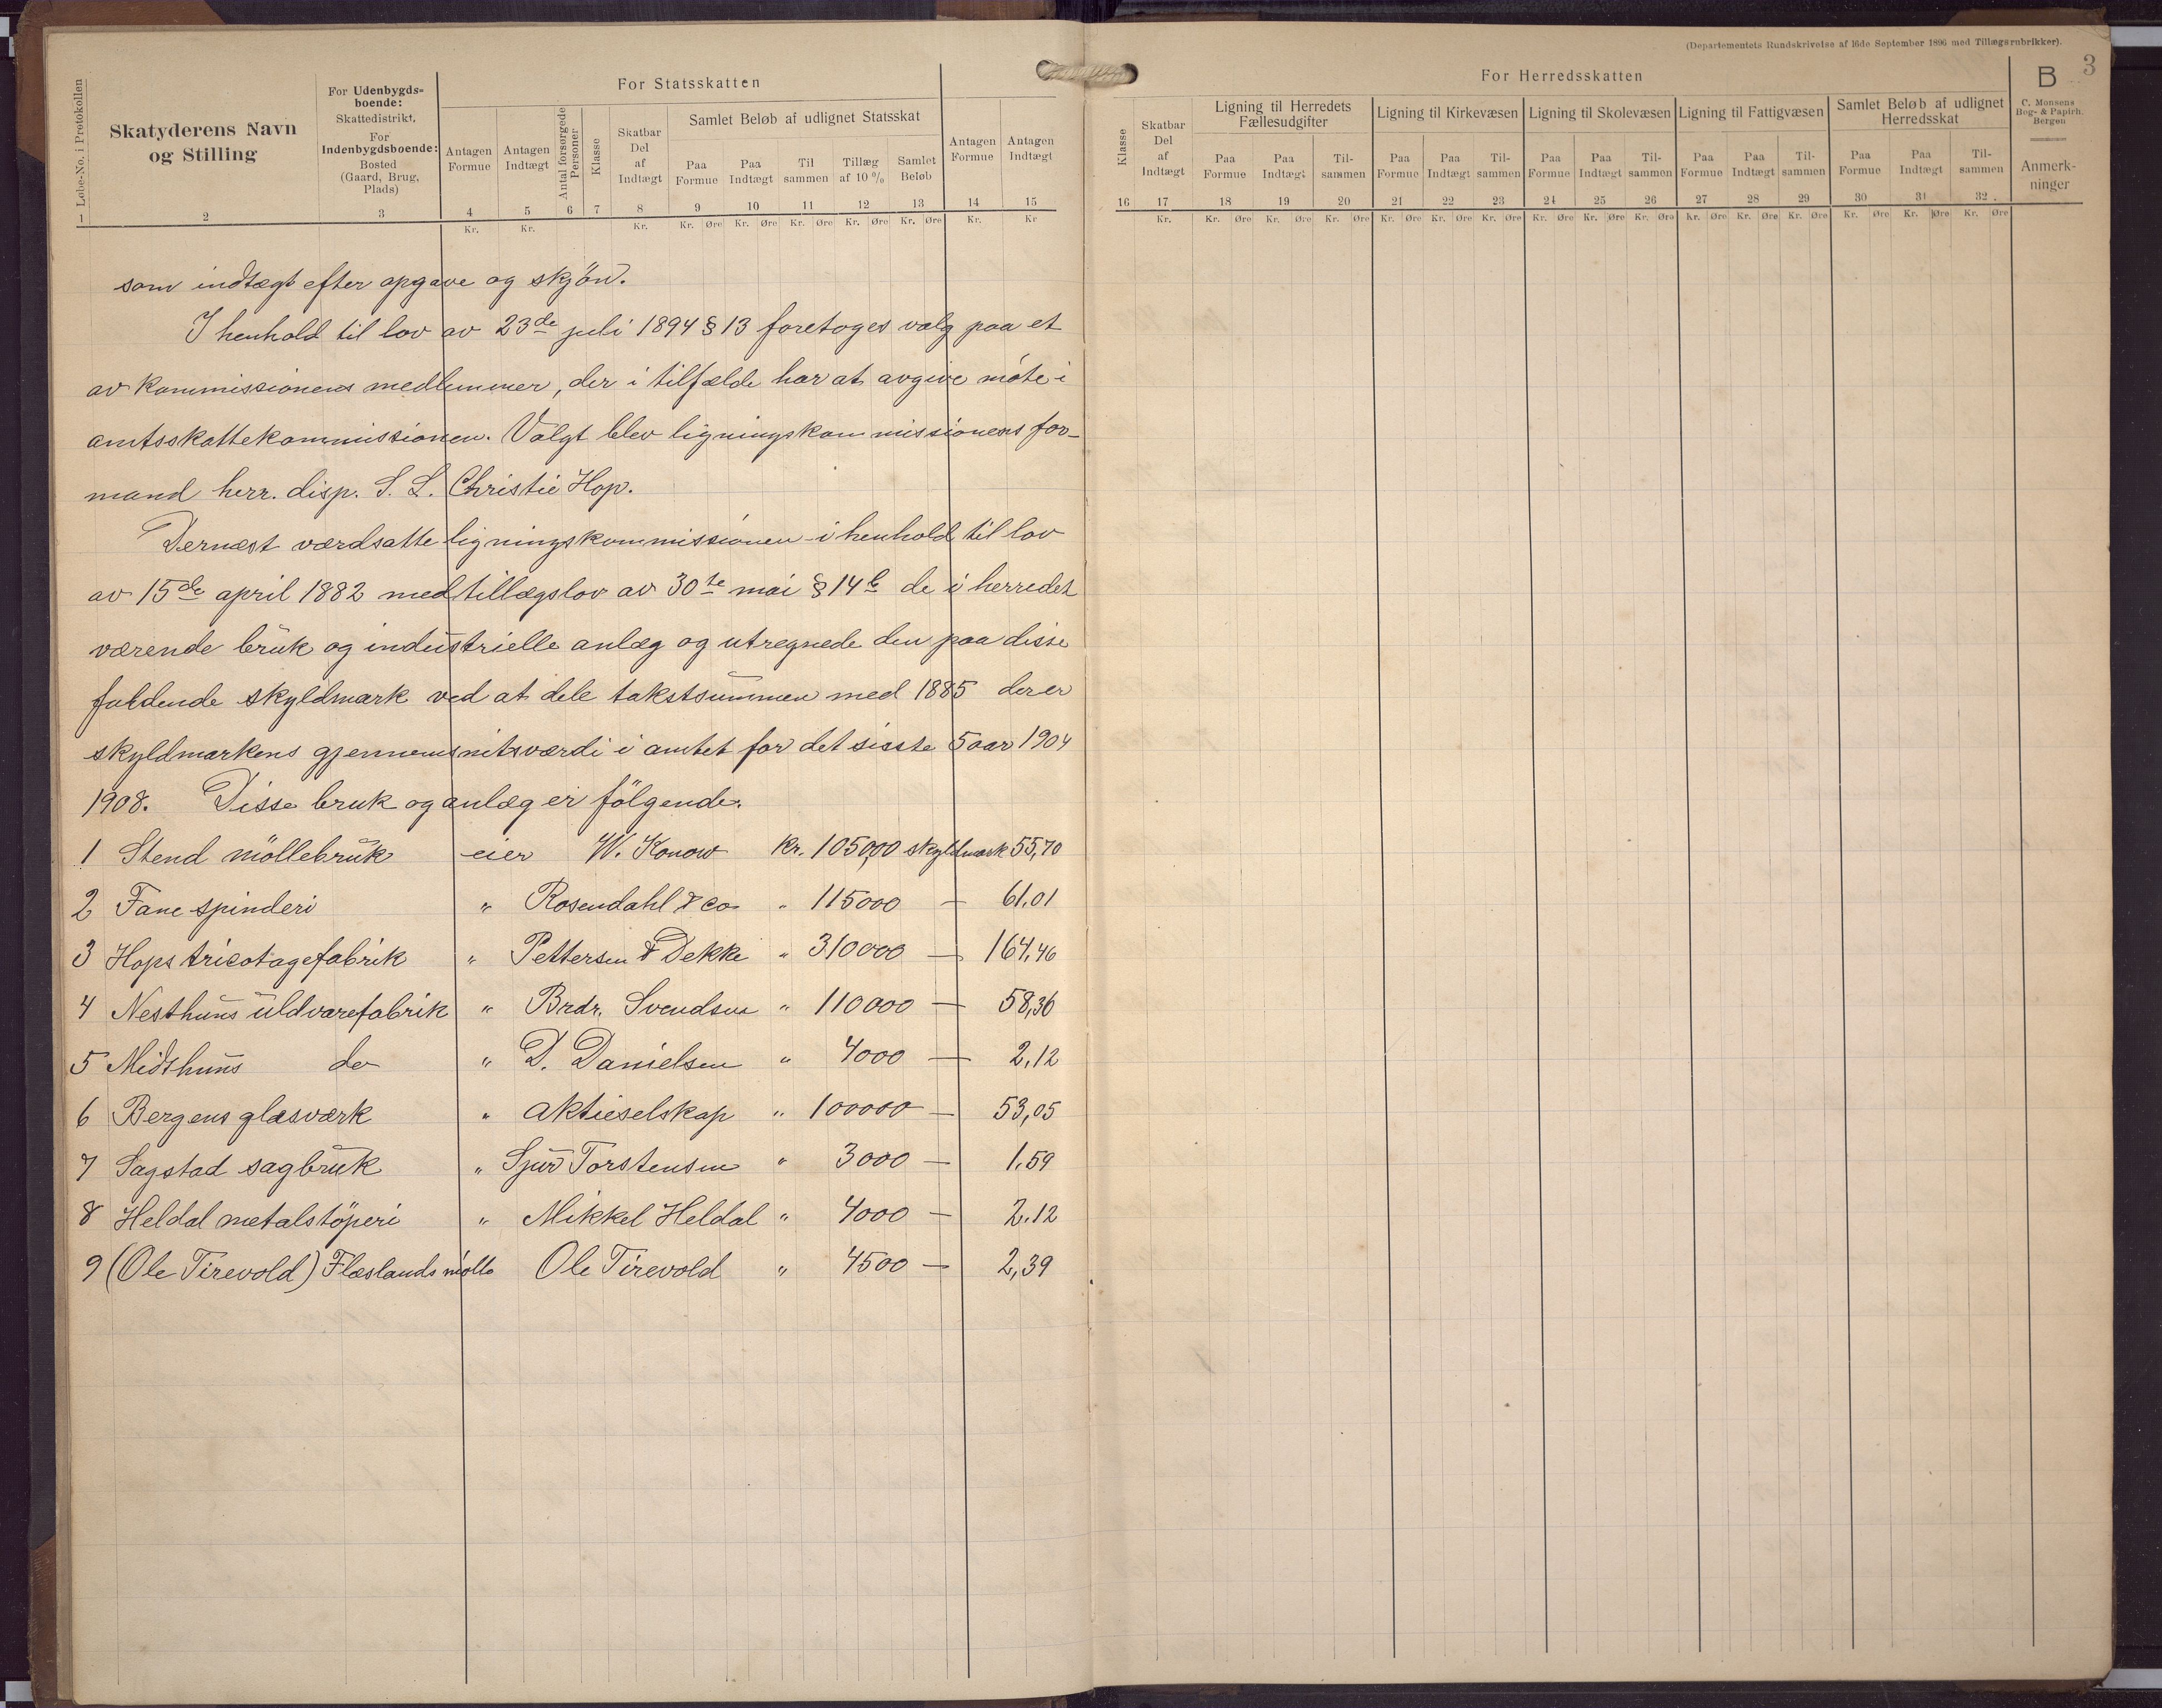 (Departementets Rundskrivelse af 16de September 1896 med Tillægsrubrikker).
3
Løbe-No. i Protokollen
Skatyderens Navn
og Stilling
For Udenbygds-
boende:
Skattedistrikt.
For
Indenbygdsboende:
Bosted
(Gaard, Brug,
Plads)
For Statsskatten
Antagen
Formue
Antagen
Indtægt
Antal forsørgede
Personer
Klasse
Skatbar
Del
af
Indtægt
Samlet Beløb af udlignet Statsskat
Paa
Formue
Paa
Indtægt
Til
sammen
Tillæg
af 10 %
Samlet
Beløb
Antagen
Formue
Antagen
Indtægt
1 2 3 4 5 6 7 8 9 10 11 12 13 14 15
Kr. Kr. Kr. Kr. Øre Kr. Øre Kr. Øre Kr. Øre Kr. Øre Kr. Kr
For Herredsskatten
Klasse
Skatbar
Del
af
Indtægt
Ligning til Herredets
Fællesudgifter
Paa
Formue
Paa
Indtægt
Til-
sammen
Ligning til Kirkevæsen
Paa
Formue
Paa
Indtægt
Til-
sammen
Ligning til Skolevæsen
Paa
Formue
Paa
Indtægt
Til-
sammen
Ligning til Fattigvæsen
Paa
Formue
Paa
Indtægt
Til-
sammen
Samlet Beløb af udlignet
Herredsskat
Paa
Formue
Paa
Indtægt
Til-
sammen
B
C. Monsens
Bog- & Papirh.
Bergen
Anmerk-
ninger
16 17 18 19 20 21 22 23 24 25 26 27 28 29 30 31 32
Kr. Kr. Øre Kr. Øre Kr. Øre Kr. Øre Kr. Øre Kr. Øre Kr. Øre Kr. Øre Kr. Øre Kr. Øre Kr. Øre Kr. Øre Kr. Øre Kr. Øre Kr. Øre
som indtægt efter opgave og skjön.
I henhold til lov av 23de juli 1894 § 13 foretoges valg paa et
av kommissionens medlemmer, der i tilfælde har at avgive möte i
amtsskattekommissionen. Valgt blev ligningskommissionens for-
mand herr. disp. S. L. Christie Hop.
Dernæst værdsatte ligningskommissionen i henhold til lov
av 15de april 1882 med tillægslov av 30te mai § 14 b de i herredet
værende bruk og industrielle anlæg og utregnede den paa disse
faldende skyldmark ved at dele takstsummen med 1885 der er
skyldmarkens gjennemsnitsværdi i amtet for det sisste 5 aar 1904
1908. Disse bruk og anlæg er fölgende.
1 Stend möllebruk eier W. Konow Kr. 105,000 skyldmark 55,70
2 Fane spinderi " Rosendahl & co " 115000 — 61,01
3 Hops tricotagefabrik " Pettersen & Dekke " 310000 — 164,46
4 Nesthuns uldvarefabrik " Brdr. Svendsen " 110000 — 58,36
5 Midthuns do " D. Danielsen " 4000 — 2,12
6 Bergens glasværk " aktieselskap " 100000 — 53,05
7 Sagstad sagbruk " Sjur Torstensen " 3000 — 1,59
8 Heldal metalstöperi " Mikkel Heldal " 4000 — 2,12
9 (Ole Tirevold) Flæslands mölle Ole Tirevold " 4500 — 2,39